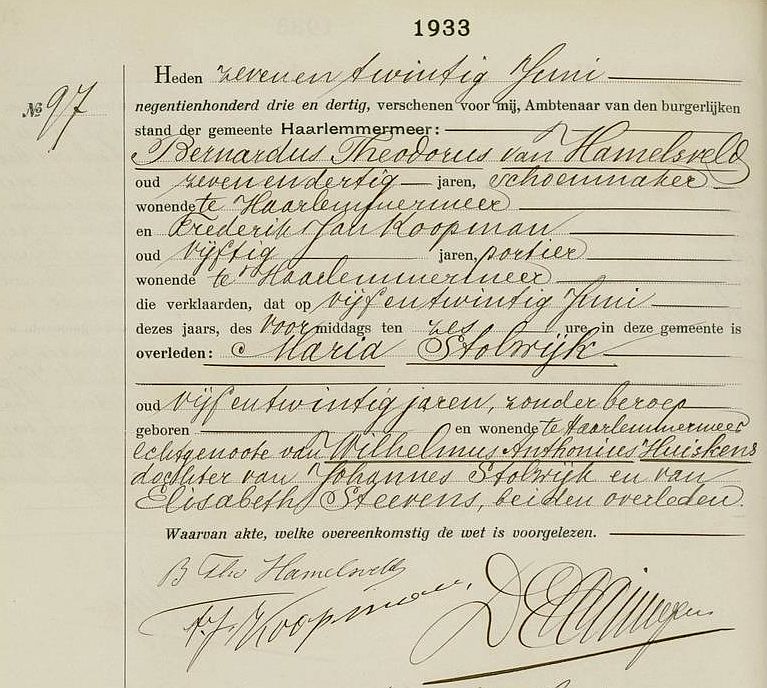 1933
№ 97
Heden zeven en twintig Juni
negentienhonderd drie en dertig, verschenen voor mij, Ambtenaar van den burgerlijken
stand der gemeente Haarlemmermeer:
Bernardus Theodorus van Hamelsveld
oud zeven en dertig jaren, schoenmaker
wonende te Haarlemmermeer
en Frederik Jan Koopman
oud vijftig jaren, portier
wonende te Haarlemmermeer
die verklaarden, dat op vijf en twintig Juni
dezes jaars, des voormiddags ten zes ure in deze gemeente is
overleden: Maria Stolwijk
oud vijf en twintig jaren, zonder beroep
geboren en wonende te Haarlemmermeer
echtgenoote van Wilhelmus Anthonius Huiskens
dochter van Johannes Stolwijk en van
Elisabeth Steevens, beiden overleden.
Waarvan akte, welke overeenkomstig de wet is voorgelezen.
B Th v Hamelsveld
F. J. Koopman